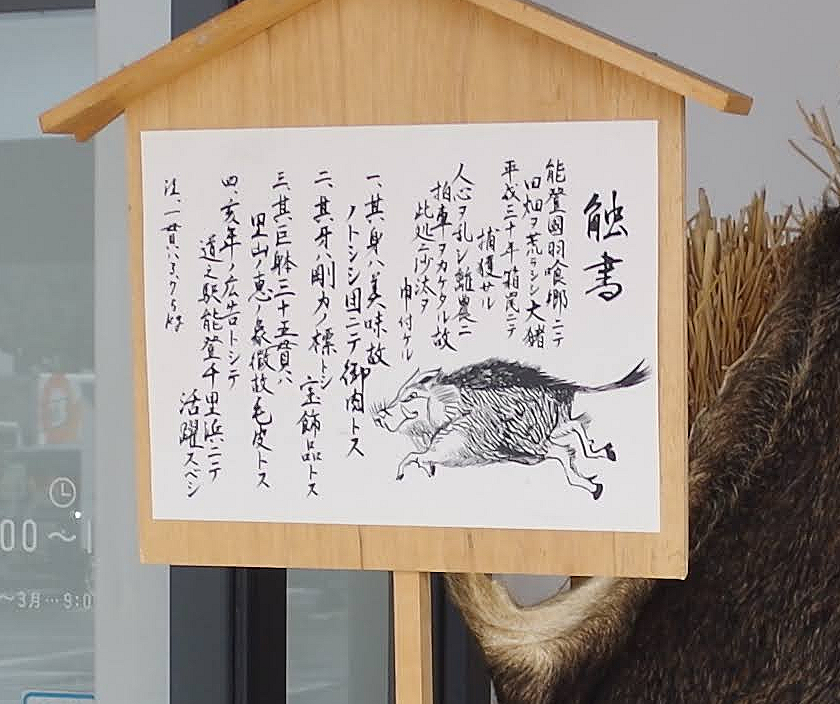 触書
能登國羽喰郷ニテ
田畑ヲ荒ラシシ大猪
平成三十年箱罠ニテ
捕獲サル
人心ヲ乱シ離農ニ
拍車ヲカケタル故
此処ニ沙汰ヲ
申付ケル
一、其身ハ美味故
ノトシシ団ニテ御肉トス
二、其牙ハ剛力ノ標トシ
宝飾品トス
三、其巨躰三十五貫ハ
里山ノ恵ノ象徴故毛皮トス
四、亥年ノ広告トシテ
道之駅能登千里浜ニテ
活躍スベシ
注、一貫ハ3.75kg
00〜1
〜3月…9:0